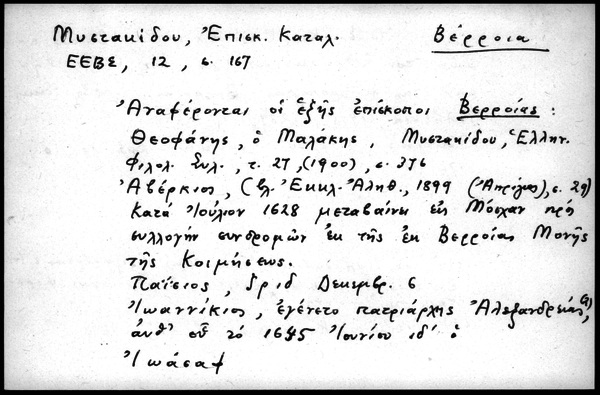 Μυστακίδου, Ἐπισκ. Καταλ. Βέρροια
ΕΕΒΣ, 12, σ. 167
Ἀναφέρονται οἱ ἑξῆς ἐπίσκοποι Βερροίας:
Θεοφάνης, ὁ Μαλάκης, Μυστακίδου, Ἑλλην.
Φιλολ. Συλ., τ. 27, (1900), σ. 376
Ἀβέρκιος, (βλ. Ἐκκλ. Ἀληθ., 1899 (Ἀπρίλιος), σ. 29)
Κατά Ἰούλιον 1628 μεταβαίνει εἰς Μόσχαν πρός
συλλογήν συνδρομῶν ἐκ τῆς ἐκ Βερροίας Μονῆς
τῆς Κοιμήσεως.
Παΐσιος, Δεκεμβρ. 6
Ἰωαννίκιος, ἐγένετο πατριάρχης Ἀλεξανδρείας,
ἀνθ' οὗ τό 1645 Ἰουνίου ιδ' ὁ
Ἰωάσαφ